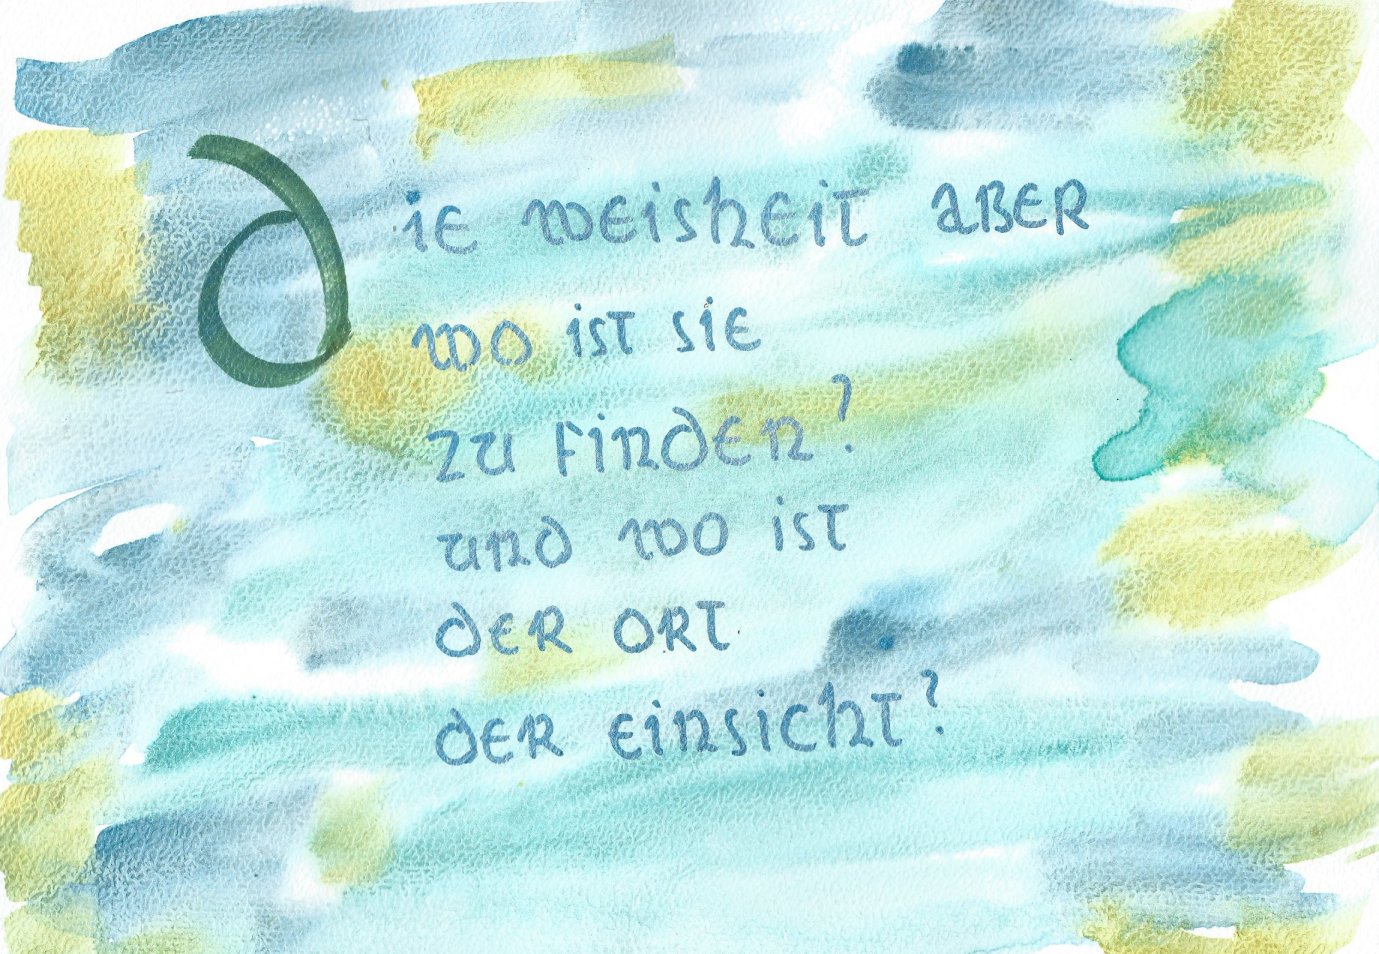 Die weisheit aber
wo ist sie
zu finden?
und wo ist
der ort
der einsicht?